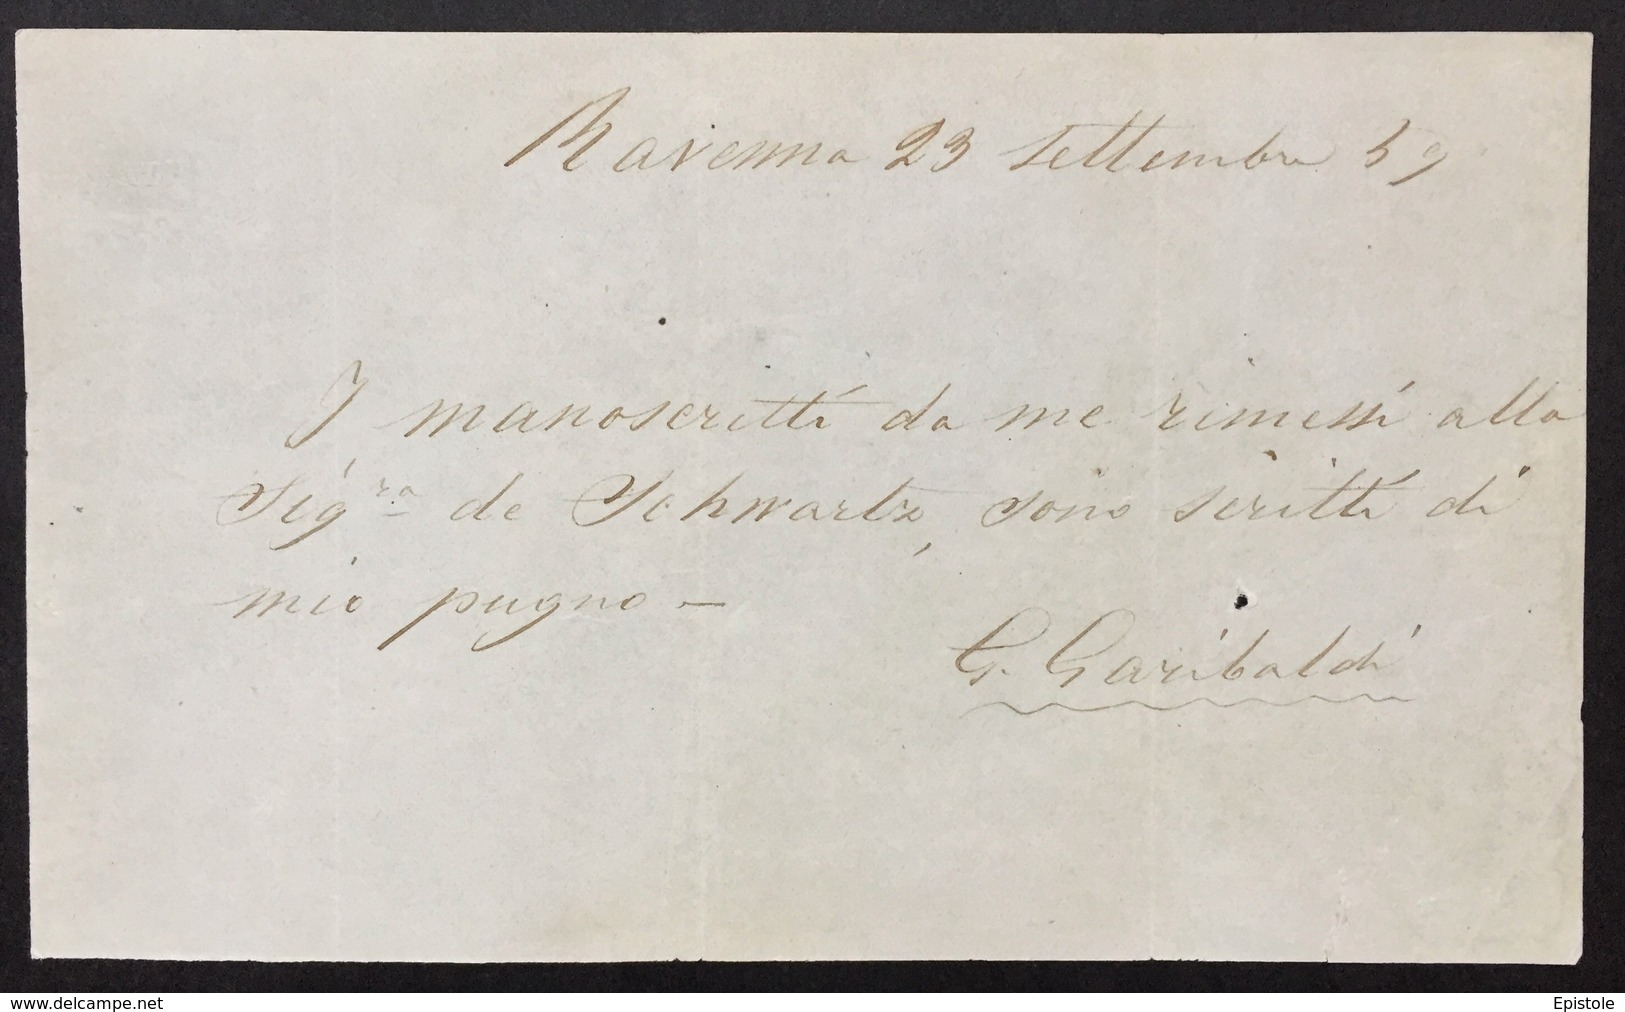 Ravenna 23 Settembre 59
I manoscritti da me rimessi alla
Sig.ra de Schwartz, sono scritti di
mio pugno –
G. Garibaldi
www.delcampe.net
Epistole